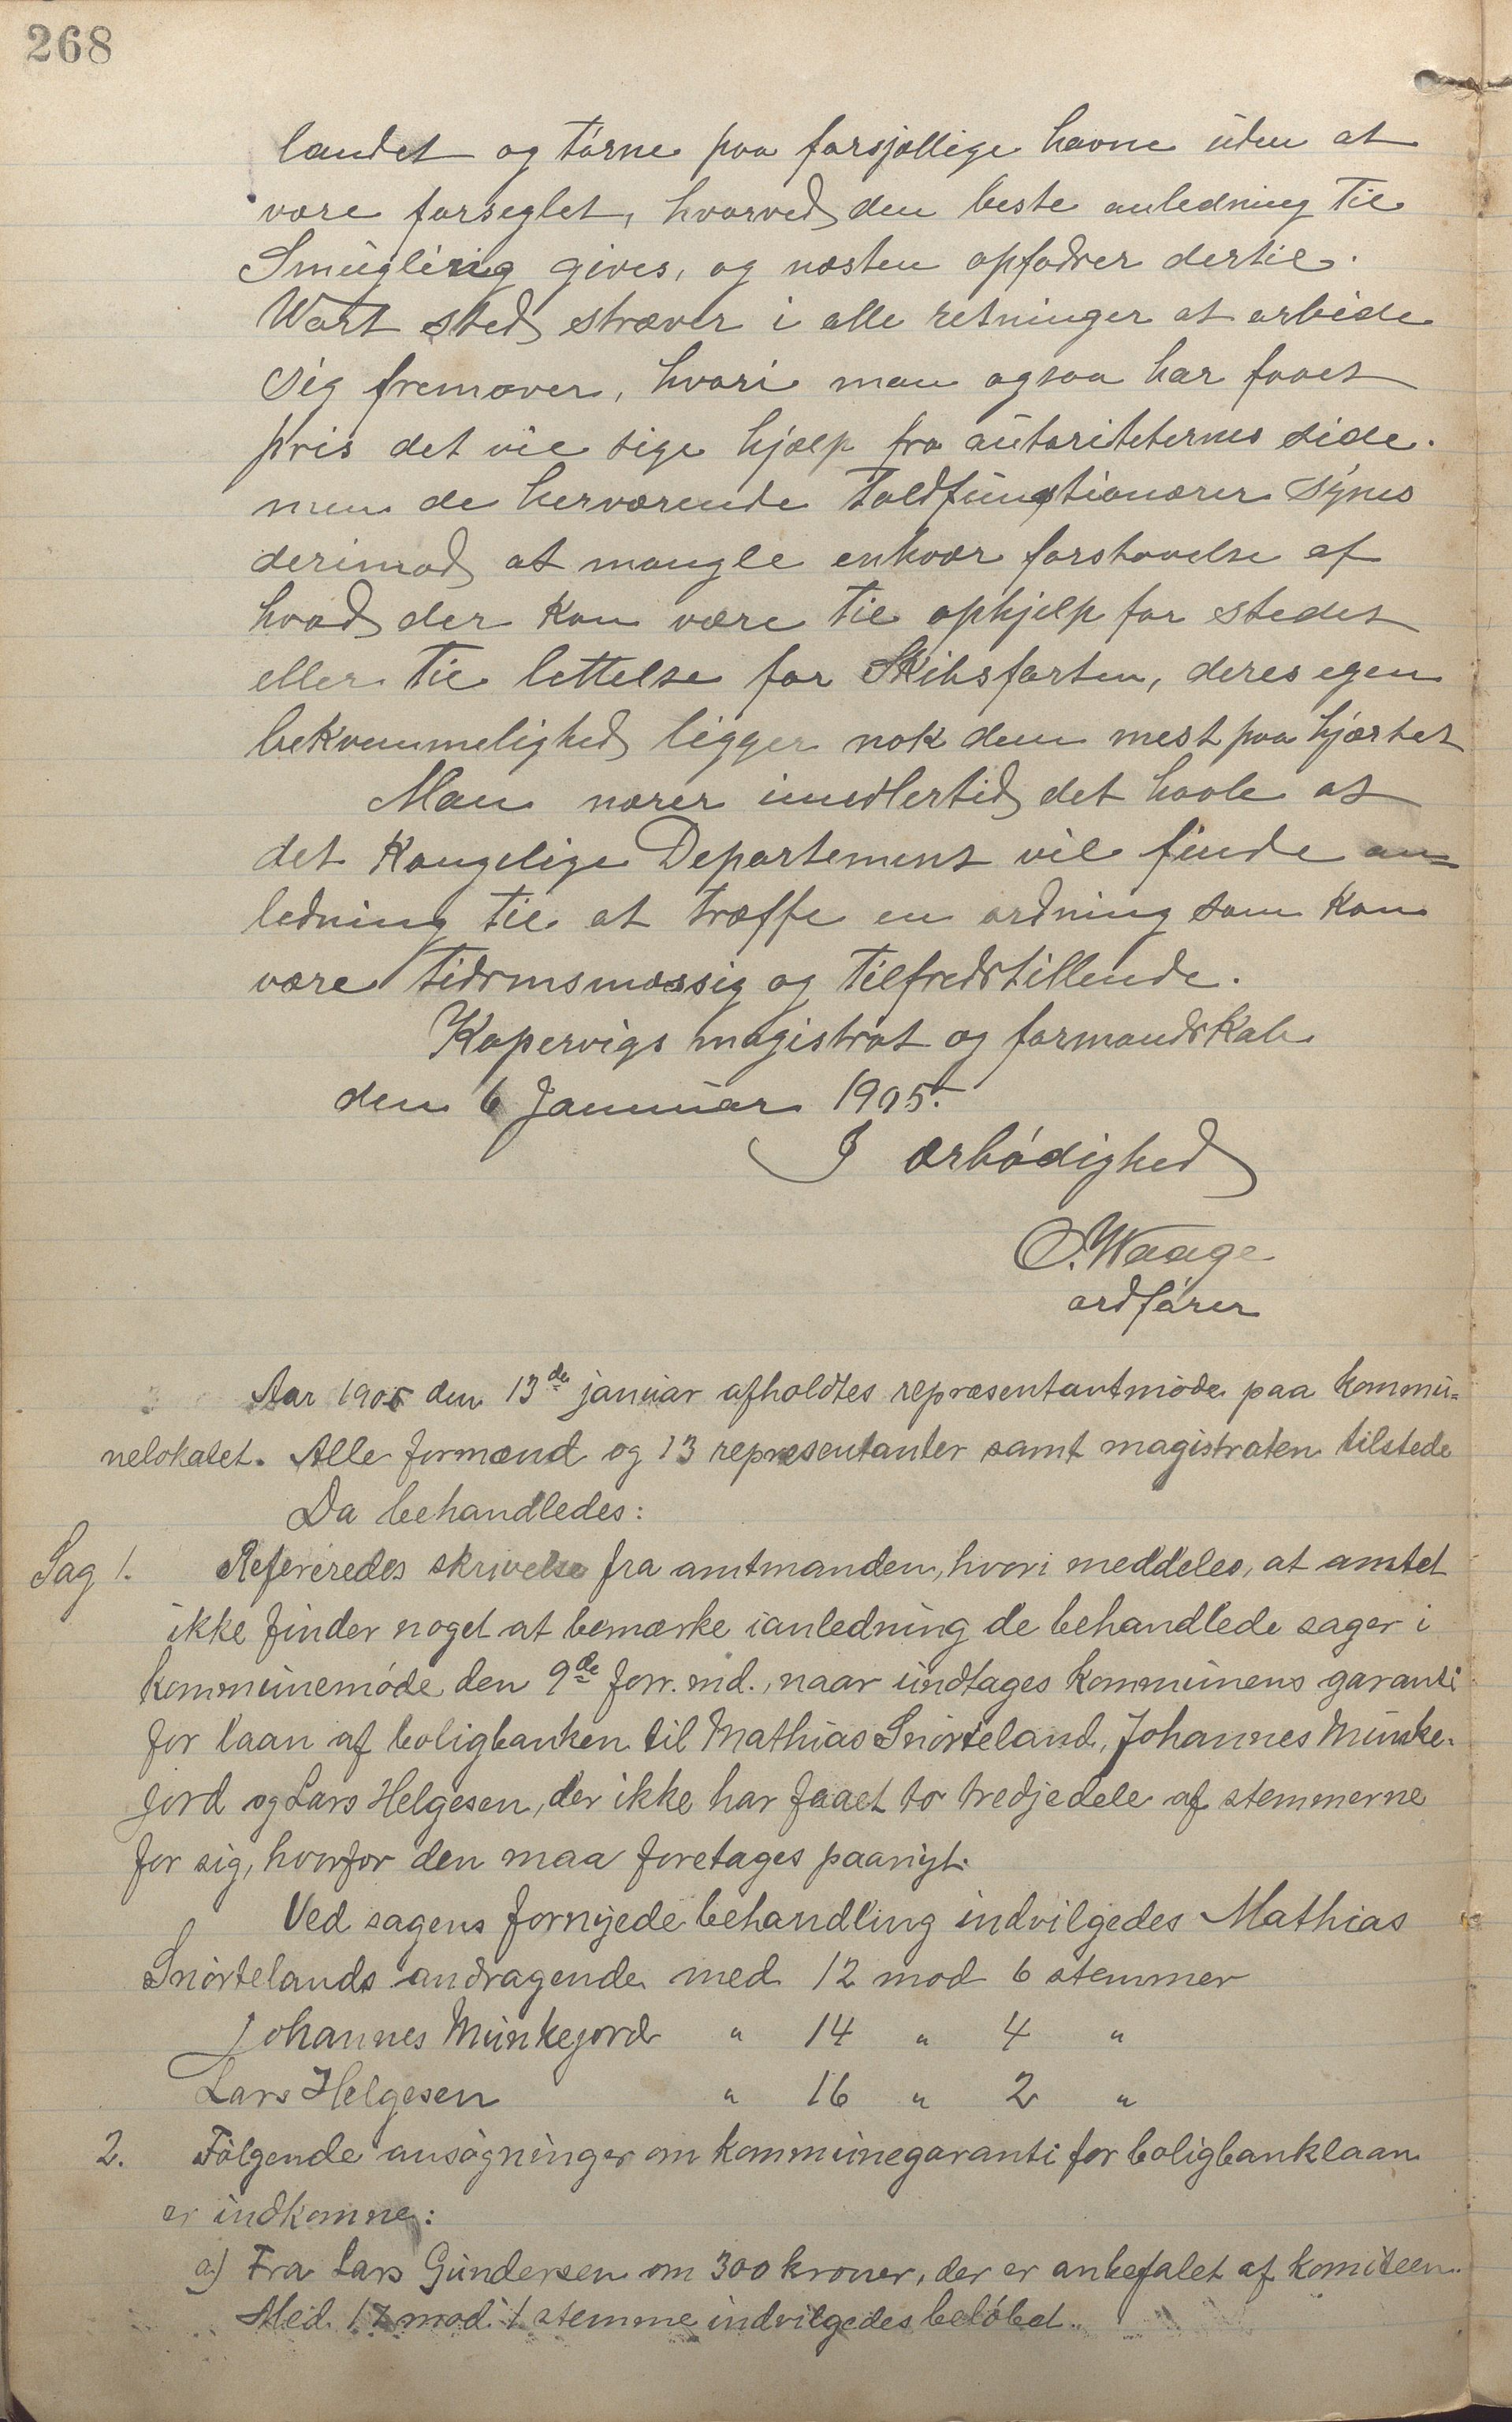 268
landet og törne paa forsjællige havne uden at
være forseglet, hvorved den beste anledning til
Smuglerig gives, og næsten opfodrer dertil.
Wort sted stræver i alle retninger at arbeide
sig fremover, hvori man ogsaa har faaet
pris det vil sige hjælp fra autoriteternes side.
men de herværende toldfunqtionærer synes
derimod at mangle enhver forstaaelse af
hvad der kan være til ophjelp for stedet
eller til lettelse for Skibsfarten, deres egen
bekvemmelighed ligger nok dem mest paa hjærtet
Man nærer imidlertid det haab at
det Kongelige Departement vil finde an=
ledning til at træffe en ordning som kan
være tidsmsmæssig og tilfredstillende.
Kopervigs magistrat og formandskab
den 6 Januuar 1905.
I ærbödighed
O. Waage
ordförer
Aar 1905 den 13de januar afholdtes repræsentantmöde paa kommu=
nelokalet. Alle formænd og 13 repræsentanter samt magistraten tilstede
Da behandledes:
Sag 1. Refereredes skrivelse fra amtmanden, hvori meddeles, at amtet
ikke finder noget at bemærke ianledning de behandlede sager i
kommunemöde den 9de forr. md., naar undtages kommunens garanti
for laan af boligbanken til Mathias Snörteland, Johannes Munke-
jord og Lars Helgesen, der ikke har faaet to tredjedele af stemmerne
for sig, hvorfor den maa foretages paanyt.
Ved sagens fornyede behandling indvilgedes Mathias
Snörtelands andragende med 12 mod 6 stemmer
Johannes Munkejord " 14 " 4 "
Lars Helgesen " 16 " 2 "
2. Fölgende ansögninger om kommunegaranti for boligbanklaan
er indkomne:
a) Fra Lars Gundersen om 300 kroner, der er anbefalet af komiteen.
Med 17 mod 1 stemme indvilgedes belöbet.